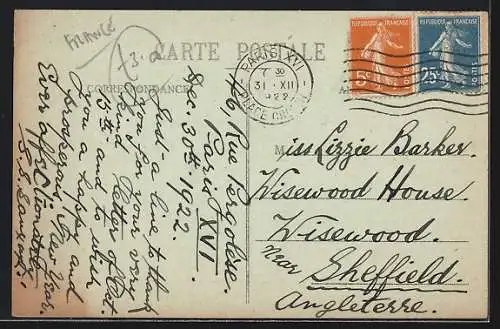 FRANCE
f3.a
CARTE POSTALE
CORRESPONDANCE
REPUBLIQUE FRANÇAISE
5c
POSTES
REPUBLIQUE FRANÇAISE
25c
POSTES
PARIS XVI
7 30
31 · XII
1922
PLACE
76, Rue Pergolèse.
Paris XVI
Dec. 30th. 1922.
Just a line to thank
you for your very
kind letter of Oct.
15th and to wish
you a happy and
prosperous New Year.
Ever affectionately
Miss Lizzie Barker.
Wisewood House.
Wisewood.
near
Sheffield.
Angleterre.